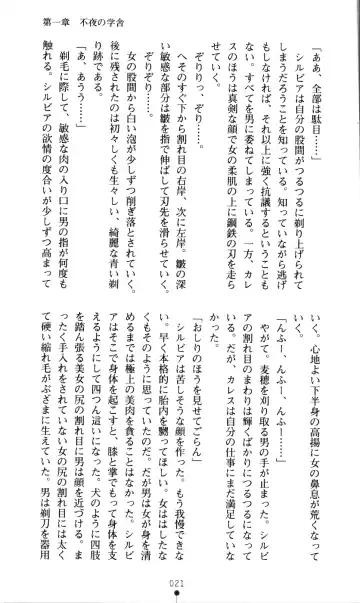 第一章　不夜の学舎
「ああ、全部は駄目……」
　シルビアは自分の股間がつるつるに剃り上げられて
しまうだろうことを知っている。知っていながら逃げ
もしなければ、それ以上に強く抗議するということも
ない。すべてを男に委ねてしまっている。一方、カレ
スのほうは真剣な顔で女の柔肌の上に鋼鉄の刃を走ら
せていく。
　ぞりりっ、ぞり……。
　へそのすぐ下から割れ目の右岸、次に左岸。皺の深
い敏感な部分は皺を指で伸ばして刃先を滑らせていく。
　ぞりぞりっ……。
　女の股間から白い泡が少しずつ削ぎ落とされていく。
後に残されたのは初々しくも生々しい、綺麗な青い剃
り跡である。
「あ、あうう……」
　剃毛に際して、敏感な肉の入り口に男の指が何度も
触れる。シルビアの欲情の度合いが少しずつ高まって
いく。心地よい下半身の高揚に女の鼻息が荒くなって
いく。
「んふー、んふー、んふー……」
　やがて、麦穂を刈り取る男の手が止まった。シルビ
アの割れ目のまわりは輝くばかりにつるつるになって
いる。だが、カレスは自分の仕事にまだ満足していな
かった。
「おしりのほうを見せてごらん」
　シルビアは苦しそうな顔を作った。もう我慢できな
い。早く本格的に胎内を嬲ってほしい。女ははしたな
くもそのように思っていたのだ。だが男は女が身を清
めるまでは極上の美肉を貪ることはなかった。シルビ
アはそこで身体を起こすと、膝と掌でもって身体を支
えるようにして四つん這いになった。犬のように四肢
を踏ん張る美女の尻の割れ目に男は顔を近づける。ま
ったく手入れをされてない女の尻の割れ目には太く
て硬い縮れ毛がぶざまに生えていた。男は剃刀を器用
021